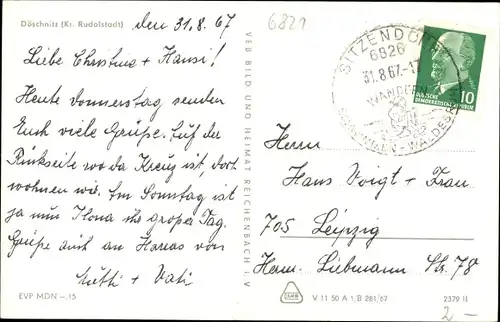 Döschnitz (Kr. Rudolstadt)
den 31.8.67
6821
Liebe Christine + Hansi!
Heute Donnerstag senden
Euch viele Grüße. Auf der
Rückseite wo da Kreuz ist, dort
wohnen wir. Am Sonntag ist
ja nun Ilona ihr großer Tag.
Grüße auch an Harras von
Mutti + Vati
EVP MDN -.15
VEB BILD UND HEIMAT REICHENBACH I. V.
SITZENDORF
6826
31.8.67-17
WANDERN
SCHWIMMEN
10
DEUTSCHE
DEMOKRATISCHE REPUBLIK
Herrn
Hans Voigt + Frau
705 Leipzig
Herm. Liebmann Str. 78
V 11 50 A 1 B 281/67
2379 II
2 -